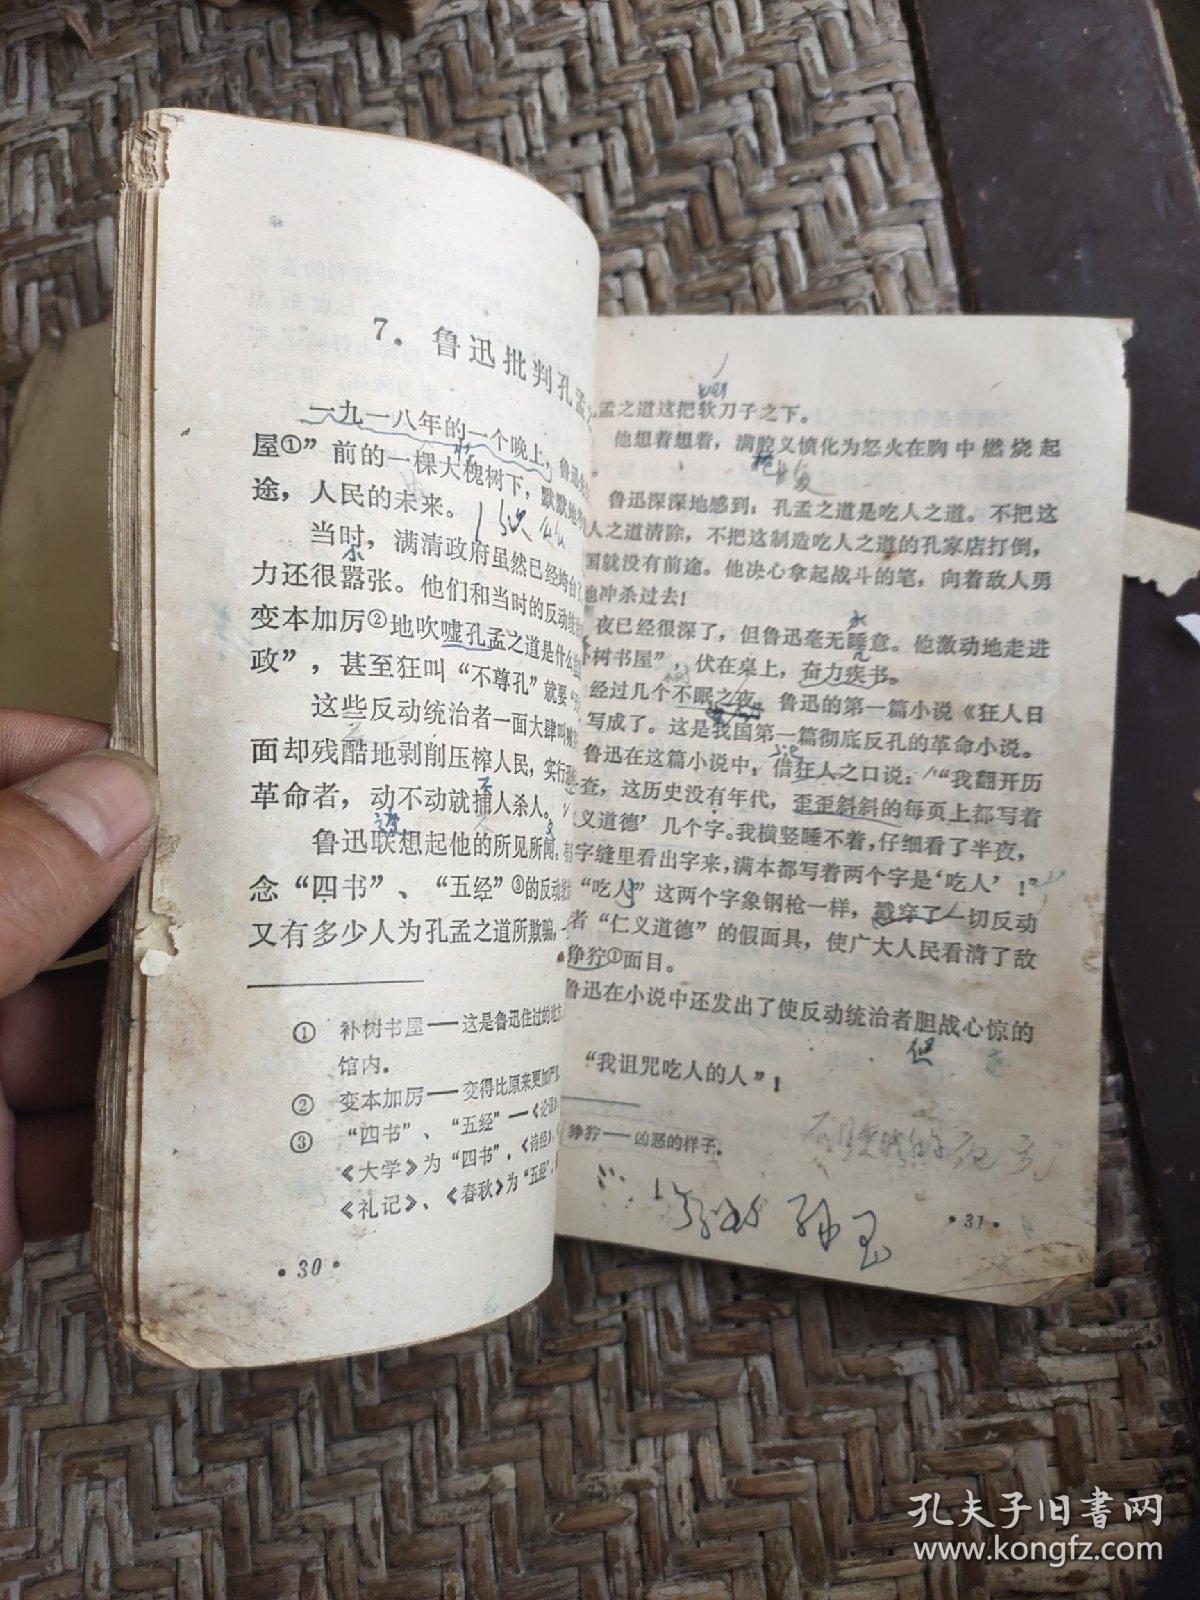 7. 鲁迅批判孔孟
一九一八年的一个晚上，鲁迅
屋①”前的一棵大槐树下，默默地
途，人民的未来。
当时，满清政府虽然已经垮台
力还很嚣张。他们和当时的反动
变本加厉②地吹嘘孔孟之道是什么
政”，甚至狂叫“不尊孔”就要“
这些反动统治者一面大肆叫
面却残酷地剥削压榨人民，实行
革命者，动不动就捕人杀人。
鲁迅联想起他的所见所闻。有
念“四书”、“五经”③的反动
又有多少人为孔孟之道所欺骗，
① 补树书屋——这是鲁迅住过的地
馆内。
② 变本加厉——变得比原来更加严
③ “四书”、“五经”——《论语》
《大学》为“四书”，《诗经》、
《礼记》、《春秋》为“五经”，
·30·
孟之道这把软刀子之下。
他想着想着，满腔义愤化为怒火在胸中燃烧起
鲁迅深深地感到：孔孟之道是吃人之道。不把这
人之道清除，不把这制造吃人之道的孔家店打倒，
国就没有前途。他决心拿起战斗的笔，向着敌人勇
地冲杀过去！
夜已经很深了，但鲁迅毫无睡意。他激动地走进
树书屋”，伏在桌上，奋力疾书。
经过几个不眠之夜，鲁迅的第一篇小说《狂人日
写成了。这是我国第一篇彻底反孔的革命小说。
鲁迅在这篇小说中，借狂人之口说：“我翻开历
查，这历史没有年代，歪歪斜斜的每页上都写着
义道德’几个字。我横竖睡不着，仔细看了半夜，
字缝里看出字来，满本都写着两个字是‘吃人’！”
“吃人”这两个字象钢枪一样，戳穿了一切反动
者“仁义道德”的假面具，使广大人民看清了敌
狰狞①面目。
鲁迅在小说中还发出了使反动统治者胆战心惊的
“我诅咒吃人的人”！
狰狞——凶恶的样子。
·31·
孔夫子旧书网
www.kongfz.com